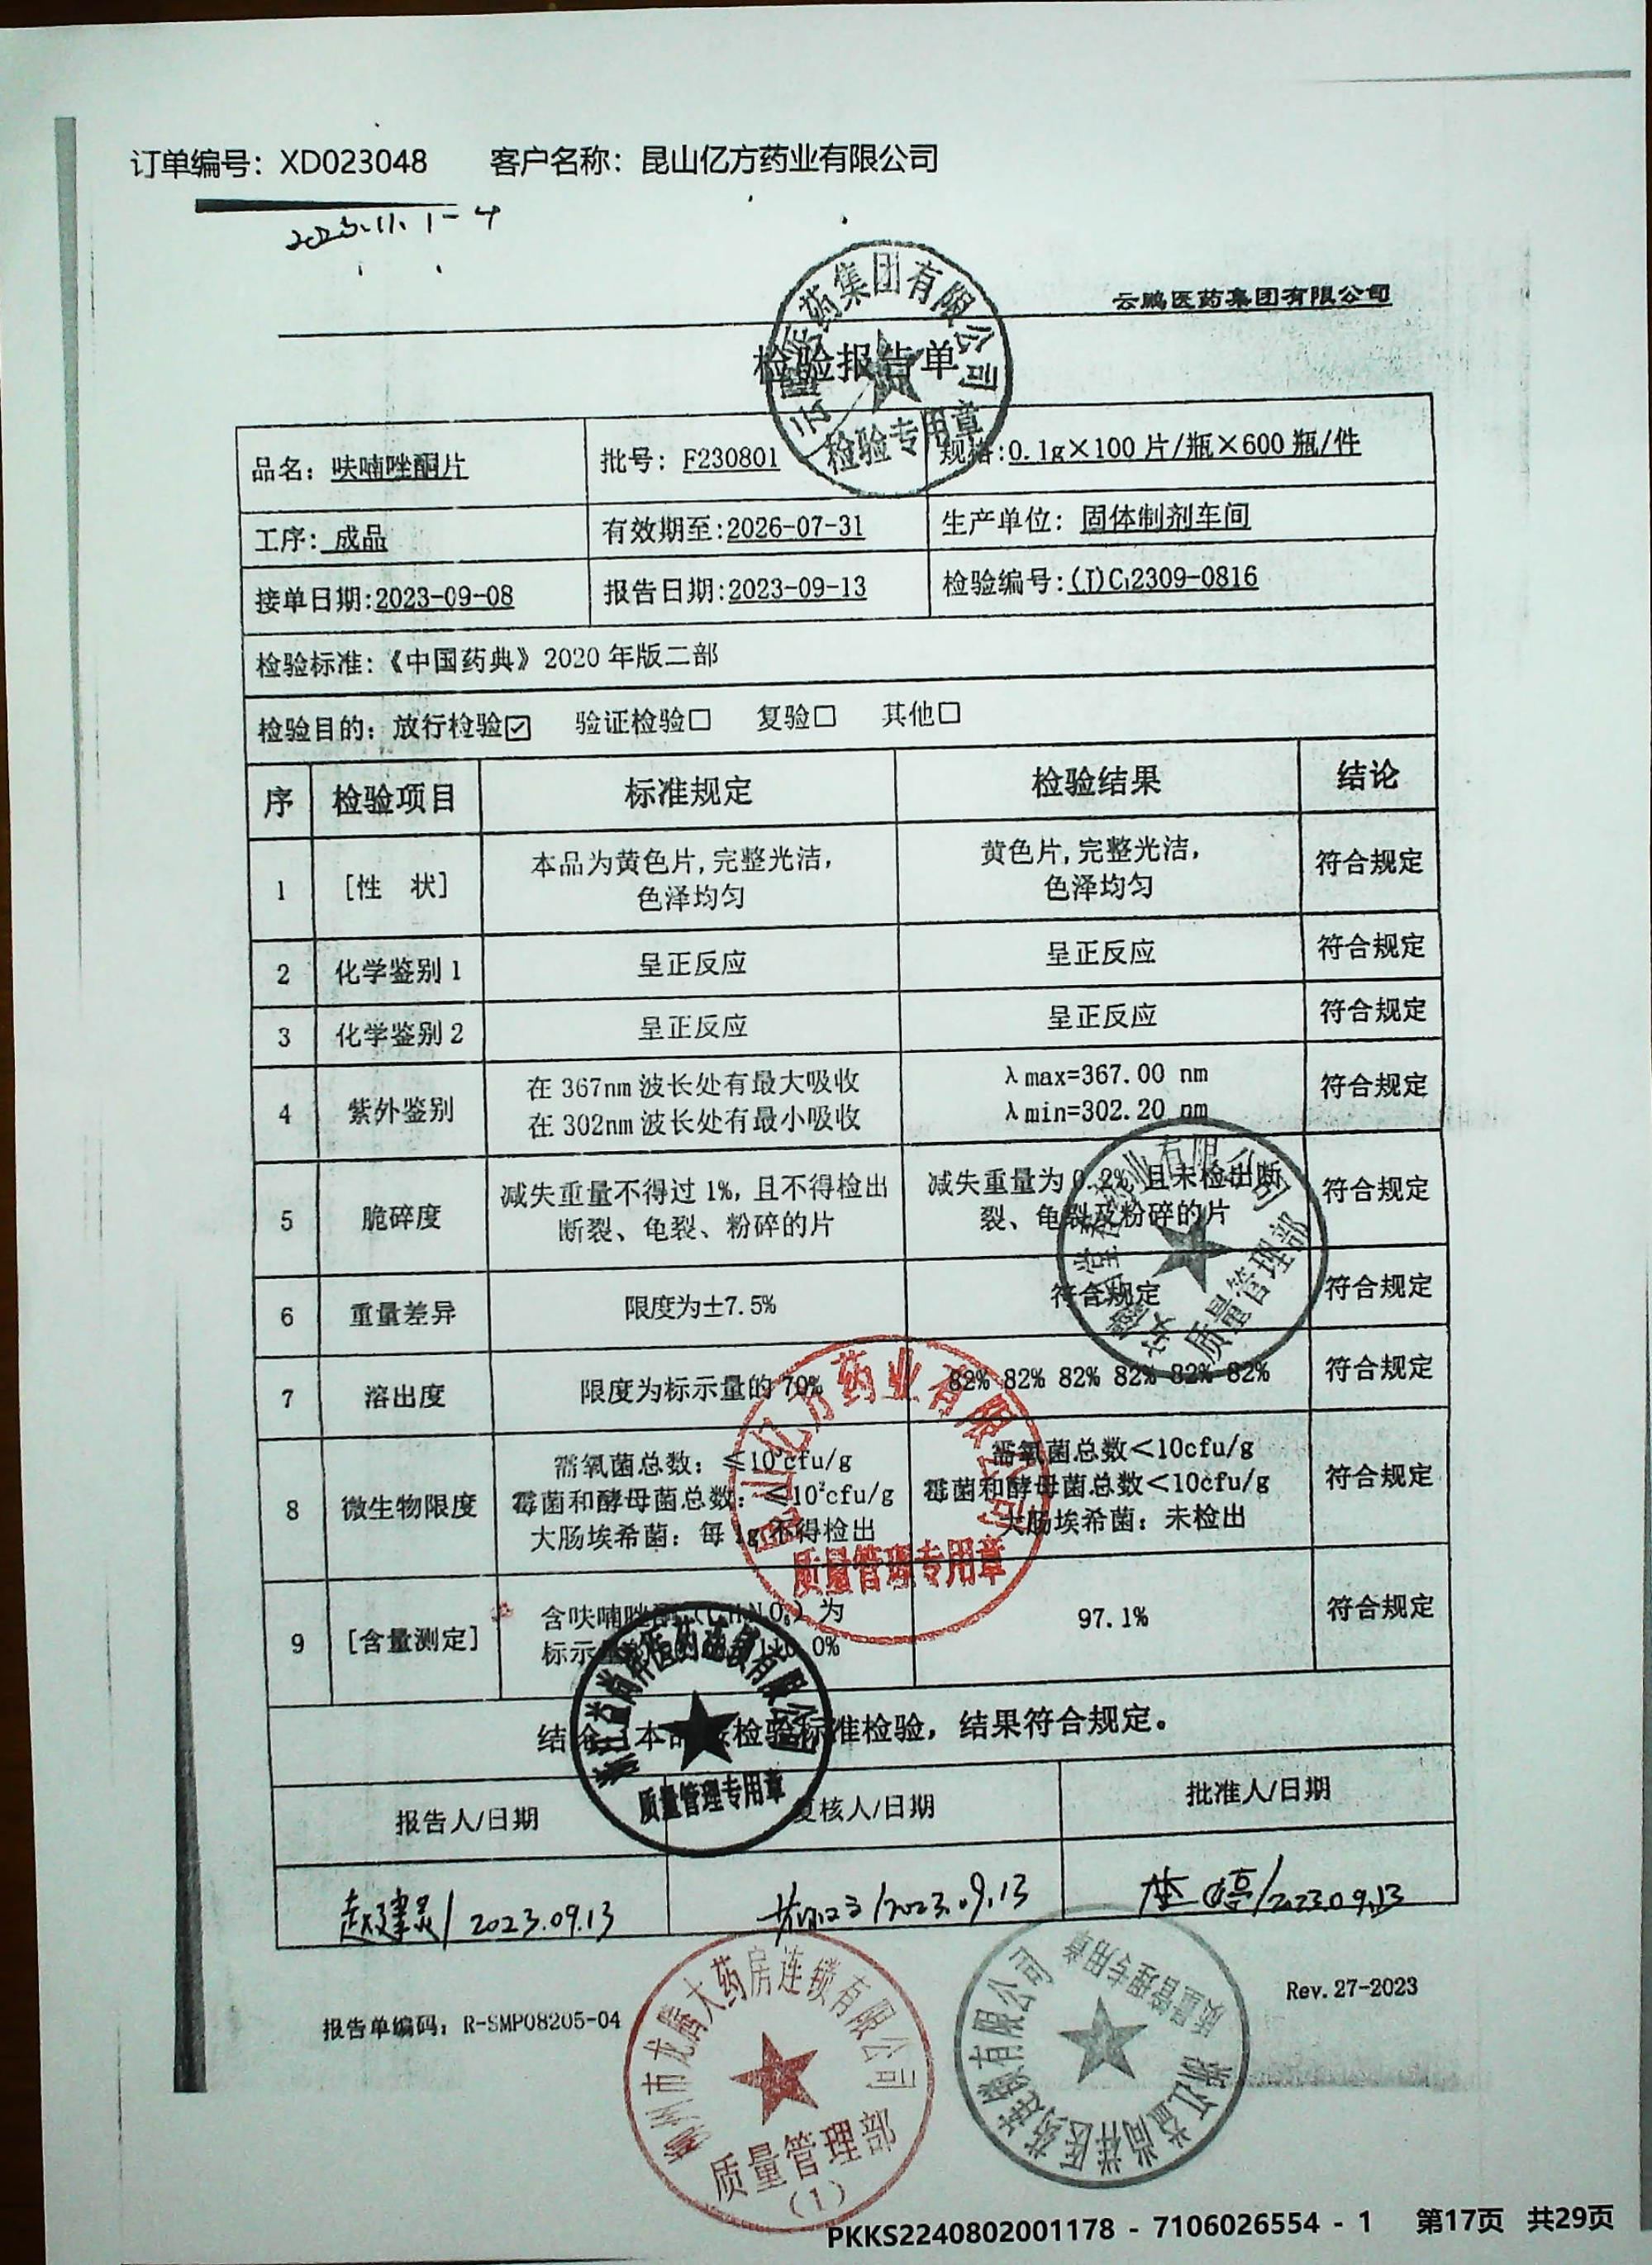 订单编号：XD023048 客户名称：昆山亿方药业有限公司
2023.11.1-4
云鹏医药集团有限公司
检验报告单
云鹏医药集团有限公司
检验专用章
品名：呋喃唑酮片 批号：F230801 规格:0.1g×100片/瓶×600瓶/件
工序：成品 有效期至:2026-07-31 生产单位：固体制剂车间
接单日期:2023-09-08 报告日期:2023-09-13 检验编号:(J)C₁2309-0816
检验标准：《中国药典》2020年版二部
检验目的：放行检验☑ 验证检验□ 复验□ 其他□
序 检验项目 标准规定 检验结果 结论
1 [性 状] 本品为黄色片,完整光洁,色泽均匀 黄色片,完整光洁,色泽均匀 符合规定
2 化学鉴别1 呈正反应 呈正反应 符合规定
3 化学鉴别2 呈正反应 呈正反应 符合规定
4 紫外鉴别 在367nm波长处有最大吸收 λmax=367.00 nm 符合规定
在302nm波长处有最小吸收 λmin=302.20 nm
5 脆碎度 减失重量不得过1%,且不得检出 减失重量为0.2%且未检出断 符合规定
断裂、龟裂、粉碎的片 裂、龟裂及粉碎的片
6 重量差异 限度为±7.5% 符合规定 符合规定
7 溶出度 限度为标示量的70% 82% 82% 82% 82% 82% 82% 符合规定
8 微生物限度 需氧菌总数：≤10³cfu/g 需氧菌总数<10cfu/g 符合规定
霉菌和酵母菌总数：≤10²cfu/g 霉菌和酵母菌总数<10cfu/g
大肠埃希菌：每1g不得检出 大肠埃希菌：未检出
9 [含量测定] 含呋喃唑酮 为 97.1% 符合规定
标示 0%
药业有限公司
质量管理部
昆山亿方药业有限公司
质量管理专用章
医药连锁有限公司
质量管理专用章
结论：本品按检验标准检验，结果符合规定。
报告人/日期 复核人/日期 批准人/日期
赵建灵/2023.09.13 /2023.09.13 /2023.09.13
报告单编码：R-SMP08205-04 Rev.27-2023
柳州市龙腾大药房连锁有限公司
质量管理部
(1)
浙江益尚祥医药连锁有限公司
质量管理专用章
PKKS2240802001178 - 7106026554 - 1 第17页 共29页